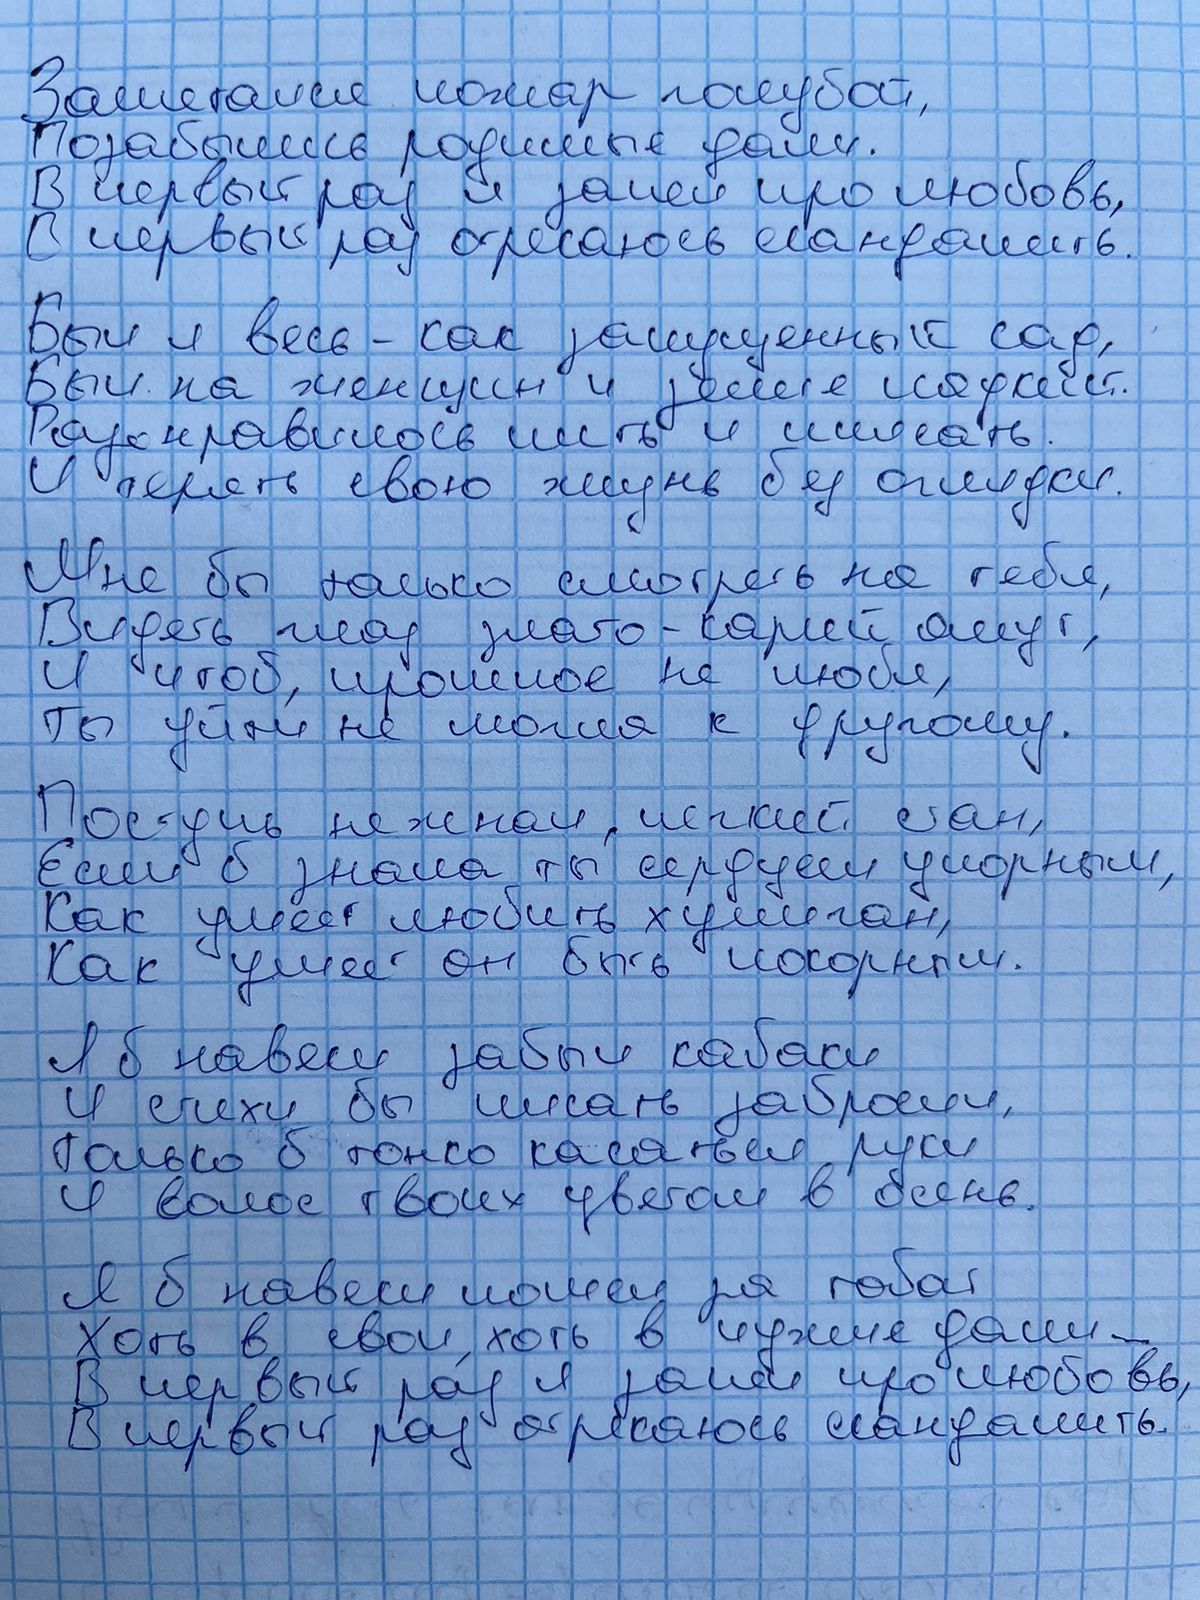 Заметался пожар голубой,
Позабылись родимые дали.
В первый раз я запел про любовь,
В первый раз отрекаюсь скандалить.
Был я весь - как запущенный сад,
Был на женщин и зелие падкий.
Разонравилось пить и плясать.
И терять свою жизнь без оглядки.
Мне бы только смотреть на тебя,
Видеть глаз злато-карий омут,
И чтоб, прошлое не любя,
Ты уйти не могла к другому.
Поступь нежная, легкий стан,
Если б знала ты сердцем упорным,
Как умеет любить хулиган,
Как умеет он быть покорным.
Я б навеки забыл кабаки
И стихи бы писать забросил,
Только б тонко касаться руки
И волос твоих цветом в осень.
Я б навеки пошел за тобой
Хоть в свои, хоть в чужие дали -
В первый раз я запел про любовь,
В первый раз отрекаюсь скандалить.